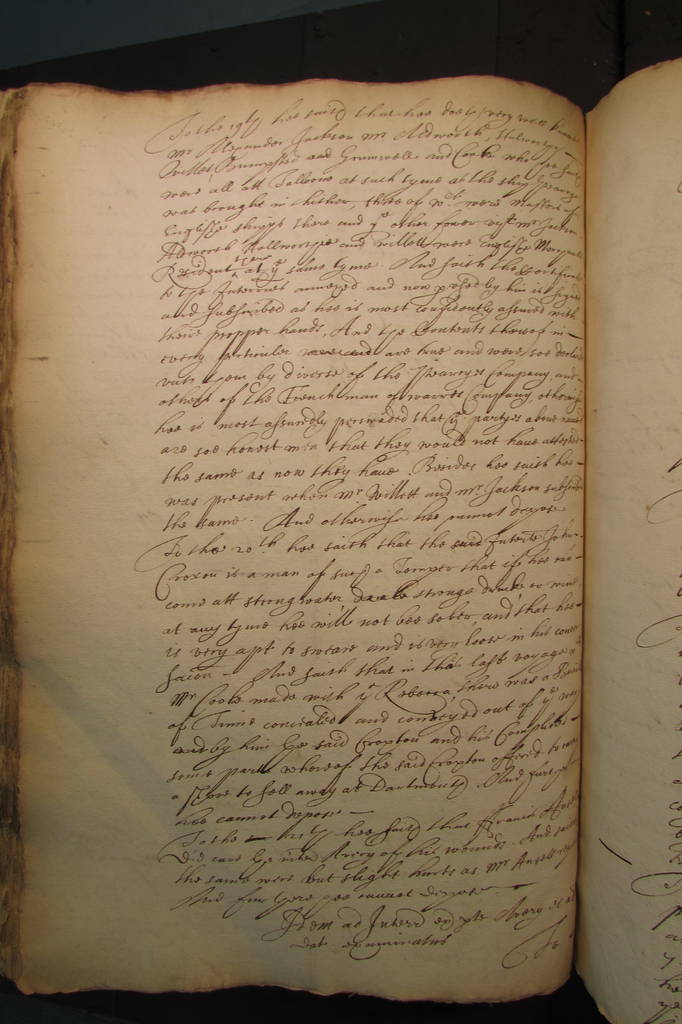 To the 19th hee saith that hee doeth very well know
Mr Alexander Jackson Mr Aldworth,
Willet Brumsted and Gumwell and Cooke who
were all att at such tyme as the shipp
was brought in thither, three of wch were Masters of
English shipps there and ye other fower vizt Mr Jackson
Aldworth and Willett were English Merchants
Resident there at ye same tyme. And saith the Certificate
to the Interries annexed and now by him is signed
and subscribed as hee is most confidently assured with
theire propper hands, And the Contents thereof in
every perticuler are true and were soe declared
unto them by diverse of the Company, and
others of the Frenchman of warres Company, otherwise
hee is most assuredly perswaded that ye partyes above named
are soe honest men that they would not have attested
the same as now they have. Besides hee saith hee
was present when Mr Willett and Mr Jackson subscribed
the same. And otherwise hee cannot depose
To the 20th hee saith that the said Interrte John
Croxon is a man of such a Temper that if hee can
come att strong water stronge drinke or wine
at any tyme hee will not bee sober, and that hee
is very apt to sweare and is very loose in his conver
sacon. And saith that in the last voyage
Mr Cooke made with ye Rebecca there was a
of Tinne concealed and conveyed out of ye way
by him the said Croxton and his Complices
some parte whereof the said Croxton offered to
a shore to sell away at Dartmouth. And further
hee cannot depose
To the hee saith that Francis Ansell
did cure the Avery of his wounds. And saith
the same were but slight hurts as Mr Ansell
And further hee cannot depose
Idem ad Interr ex pte Avery
dat examinatus
To